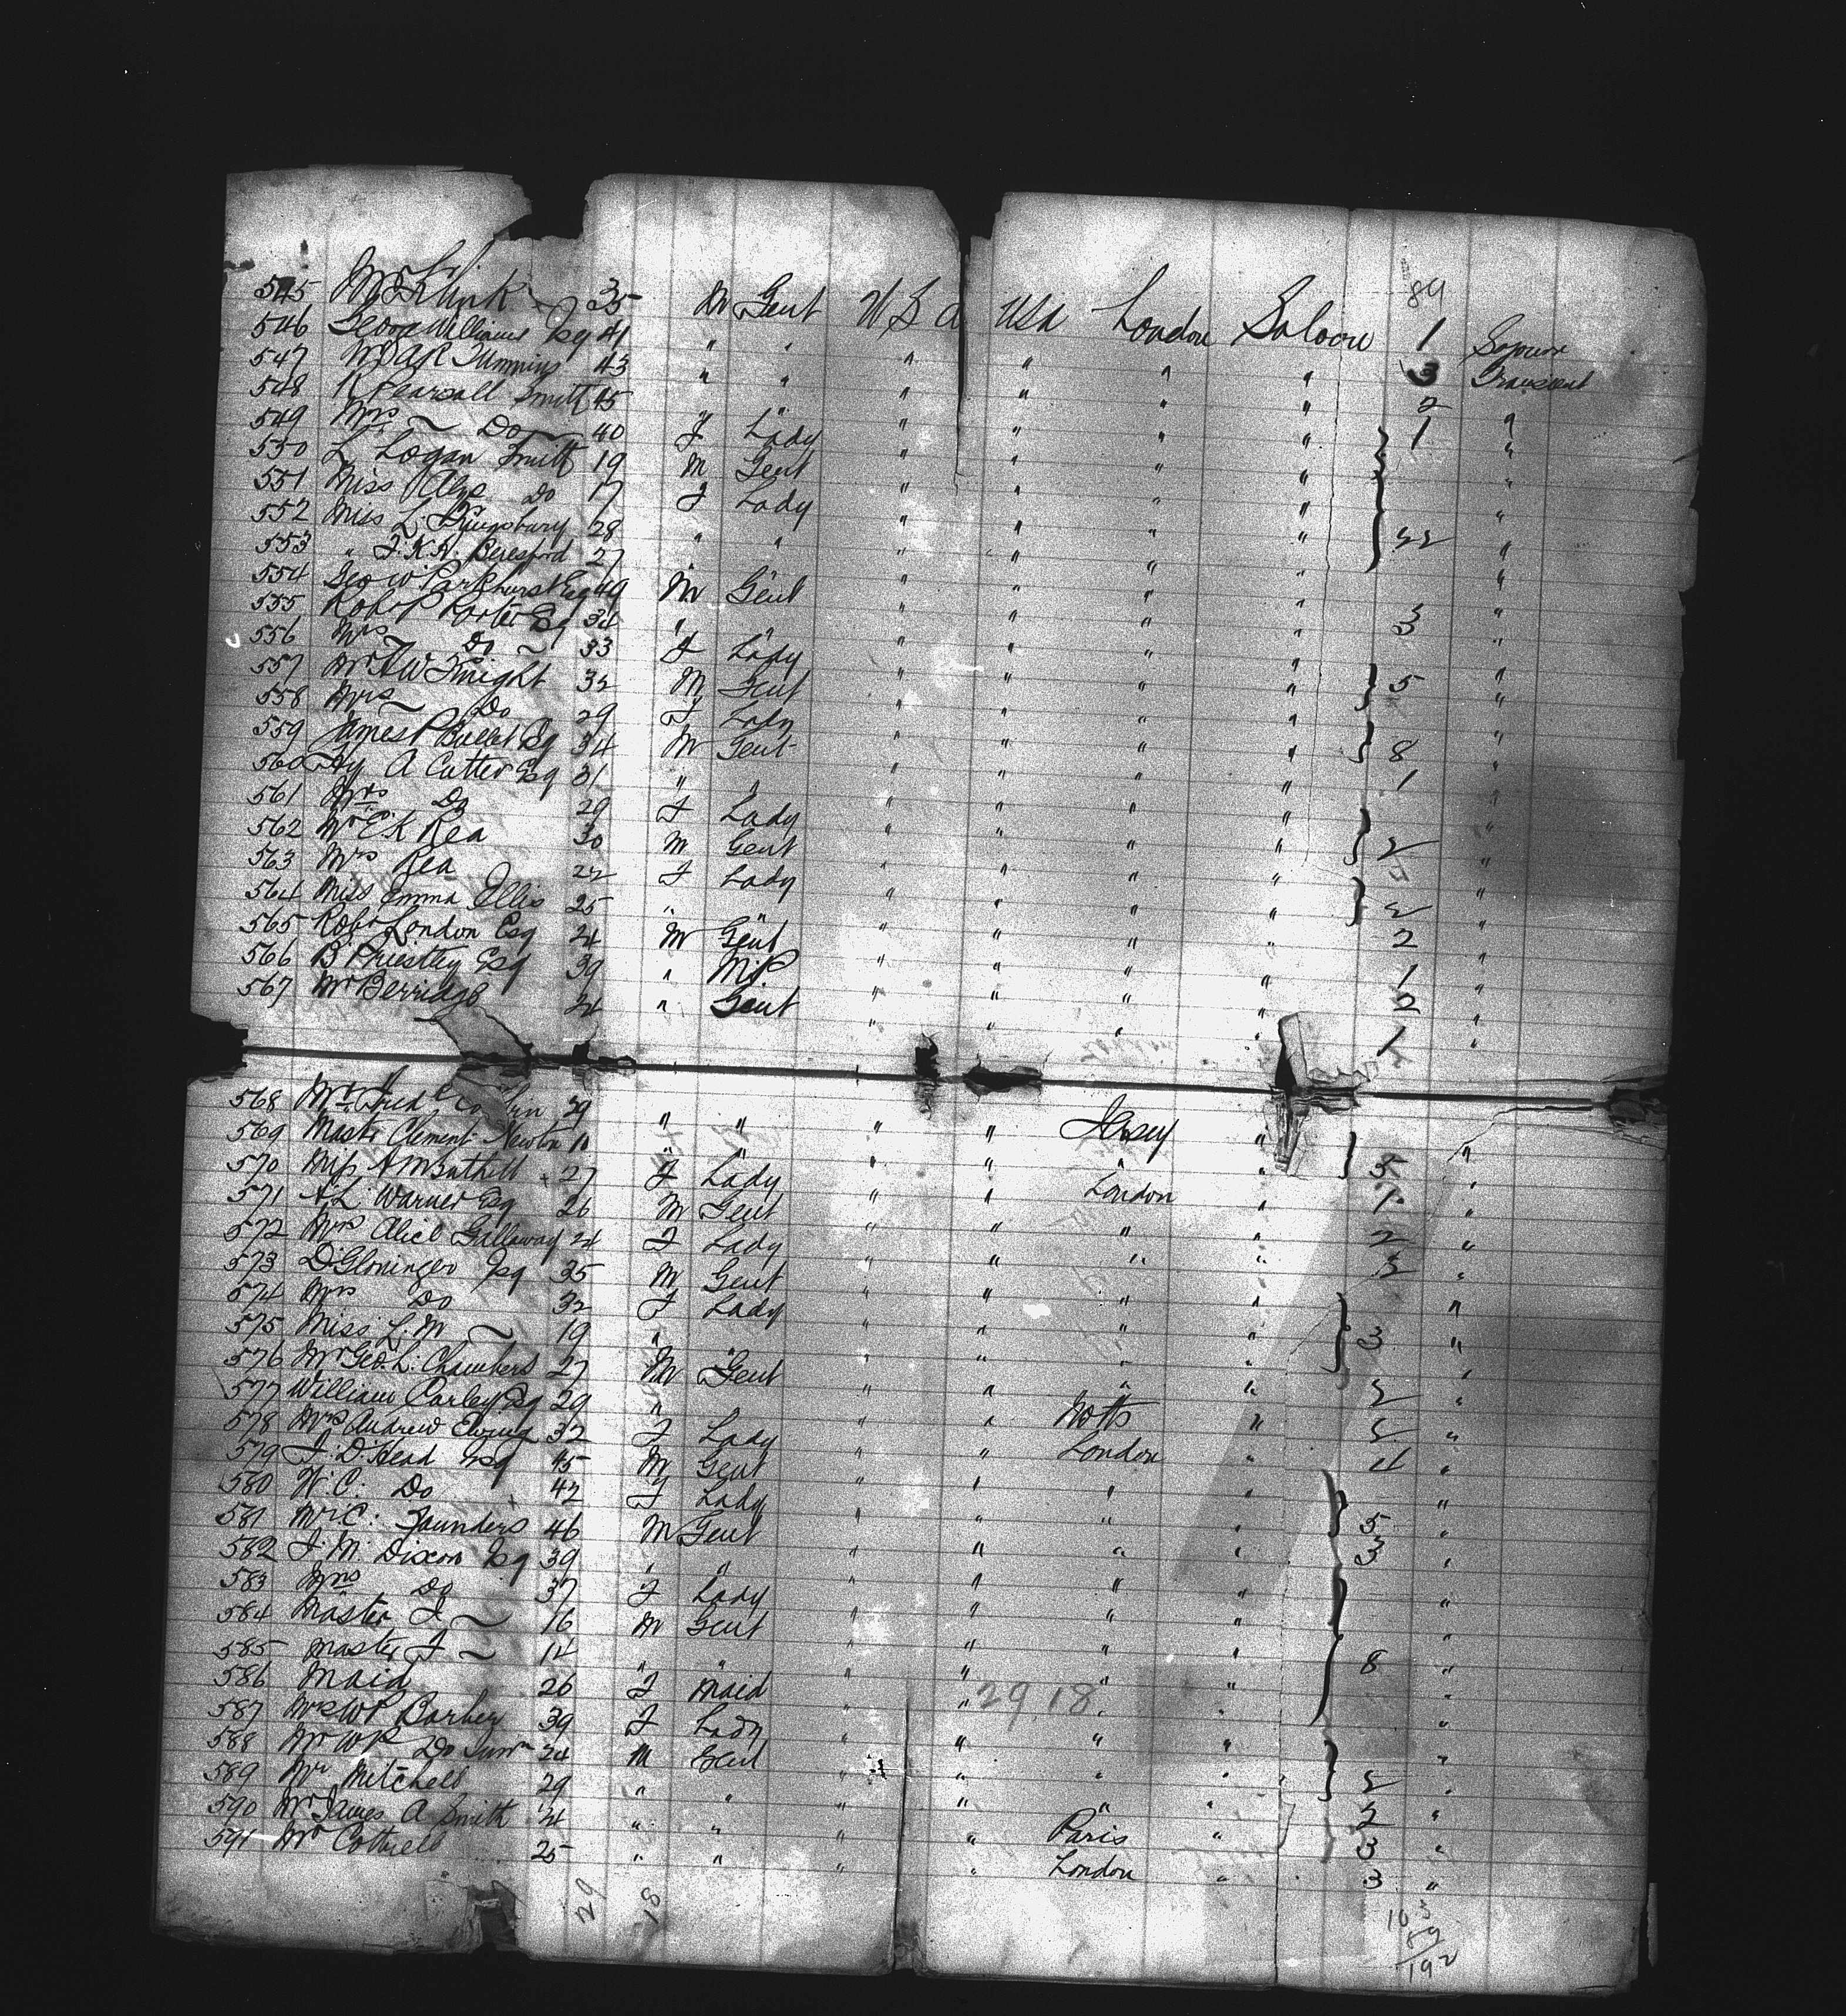 89
545 Mr Klink 35 M Gent U S A USA London Saloon 1 Sojourn
546 Geo Williams Esq 41 " " " " " " 3 Transient
547 43 " " " " " " 2 "
548 R Pearsall Smith 45 " " " " 1 "
549 Mrs Do 40 F Lady " " " " "
550 L Logan Smith 19 M Gent " " " " "
551 Miss Do 17 F Lady " " " " "
552 Miss L Kingsbury 28 " " " " " " 22 "
553 " Beresford 27 " " " " "
554 Geo W Parkhurst Esq 49 M Gent " " " " 3 "
555 Robt P Porter Esq 34 " " " " " " "
556 Mrs Do 33 F Lady " " " " 5 "
557 Mr A W Knight 32 M Gent " " " " "
558 Mrs Do 29 F Lady " " " " 8 "
559 James P Esq 34 M Gent " " " " 1 "
560 Hy A Cutter Esq 31 " " " " " " "
561 Mrs Do 29 F Lady " " " " 2 "
562 Mr E K Rea 30 M Gent " " " " "
563 Mrs Rea 22 F Lady " " " " 2 "
564 Miss Emma Ellis 25 " " " " " " 2 "
565 Robt London Esq 24 M Gent " " " " 1 "
566 B Priestley Esq 39 " M.P " " " " 2 "
567 Mr Berridge 24 " Gent " " " " 1 "
568 Mr Fred 29 " " " " Jersey "
569 Master Clement Newton 10 " " " " " " 5 "
570 Miss A M 27 F Lady " " London " 1 "
571 A L Warner Esq 26 M Gent " " " " 2 "
572 Mrs Alice Gallaway 24 F Lady " " " " 2 "
573 D Gloninger Esq 35 M Gent " " " " "
574 Mrs Do 32 F Lady " " " " 3 "
575 Miss L. M 19 " " " " " " "
576 Mr Geo. L. Chambers 27 M Gent " " " " 2 "
577 William Carley Esq 29 " " " " Notts " 2 "
578 Mrs Andrew Ewing 32 F Lady " " London " 4 "
579 J. D. Head Esq 45 M Gent " " " " "
580 W. C. Do 42 F Lady " " " " 5 "
581 Mr C. Saunders 46 M Gent " " " " 3 "
582 J. M. Dixon Esq 39 " " " " " " "
583 Mrs Do 37 F Lady " " " " "
584 Master J 16 M Gent " " " " 8 "
585 Master F 14 " " " " " " "
586 Maid 26 F Maid " " " " "
29 18
587 Mrs W P Barber 39 F Lady " " " " "
588 Mr W P Do Junr 24 M Gent " " " " 2 "
589 Mr Mitchell 29 " " " " " " 2 "
590 Mr James A Smith 24 " " " " Paris " 3 "
591 Mr Cottrell 25 " " " " London " 3 "
29 18
192